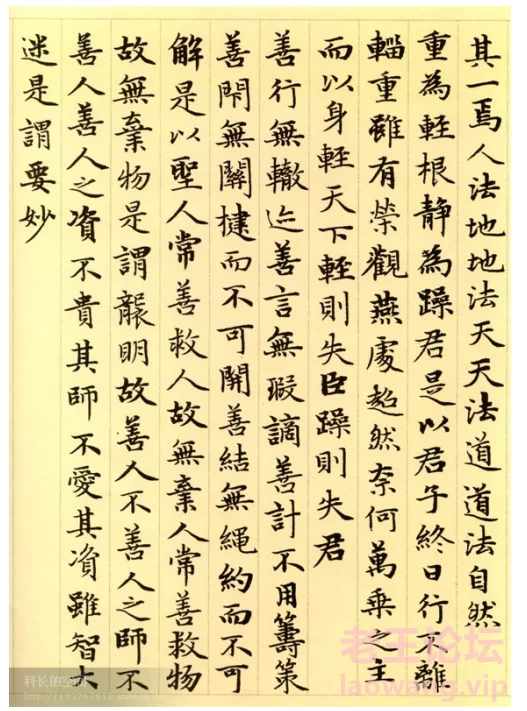 其一焉人法地地法天天法道道法自然
重為輕根静為躁君是以君子終日行不離
輜重雖有榮觀燕處超然柰何萬乘之主
而以身輕天下輕則失臣躁則失君
善行無轍迹善言無瑕謫善計不用籌策
善閇無關楗而不可開善結無繩約而不可
解是以聖人常善救人故無棄人常善救物
故無棄物是謂襲明故善人不善人之師不
善人善人之資不貴其師不愛其資雖智大
迷是謂要妙
老王论坛
laowang.vip
科长的空间